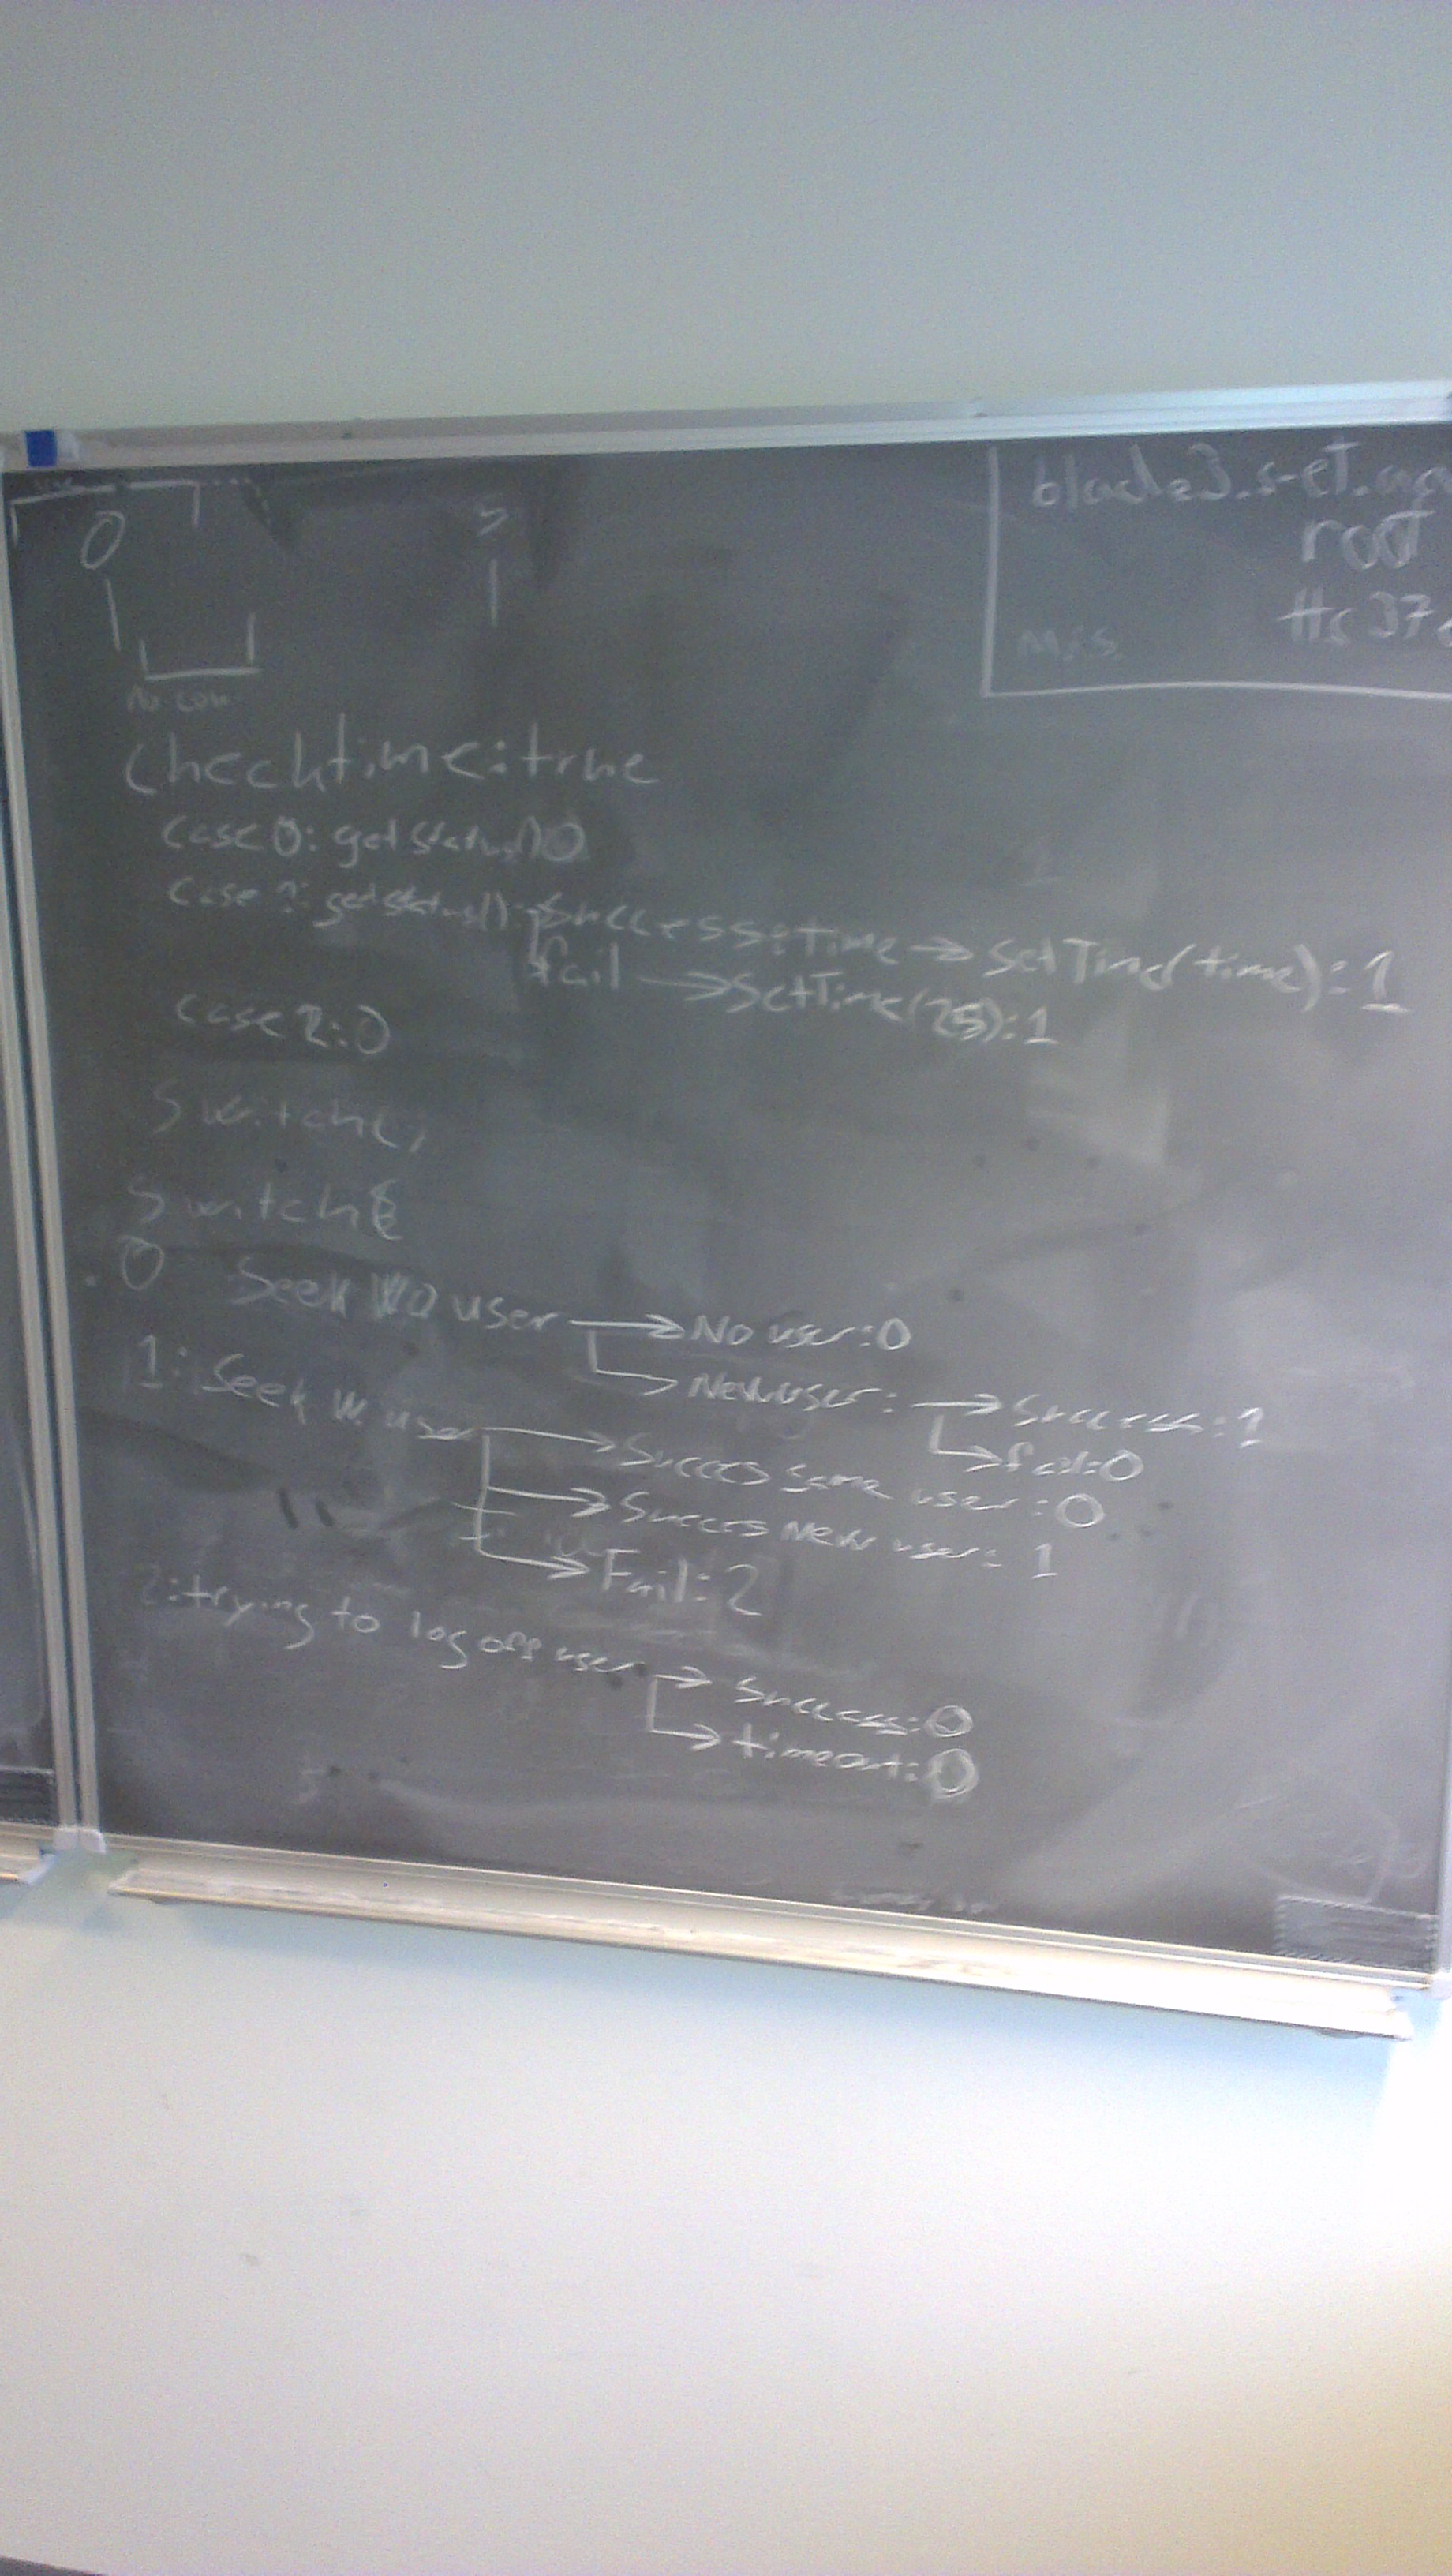 0 5
blade3.s-et.
root
M.S.S.
No con
checktime:true
case 0: getstatus() 0
case 1: getstatus(): Success:time → SetTime(time):1
fail → SetTime(25):1
case 2:0
switch(,
switch{
0 Seek WO user → No user:0
→ New user: → Success:1
→ fail:0
1: Seek W user → Succes same user:0
→ Succes New user: 1
→ Fail:2
2:trying to log off user → Success:0
→ timeout:0